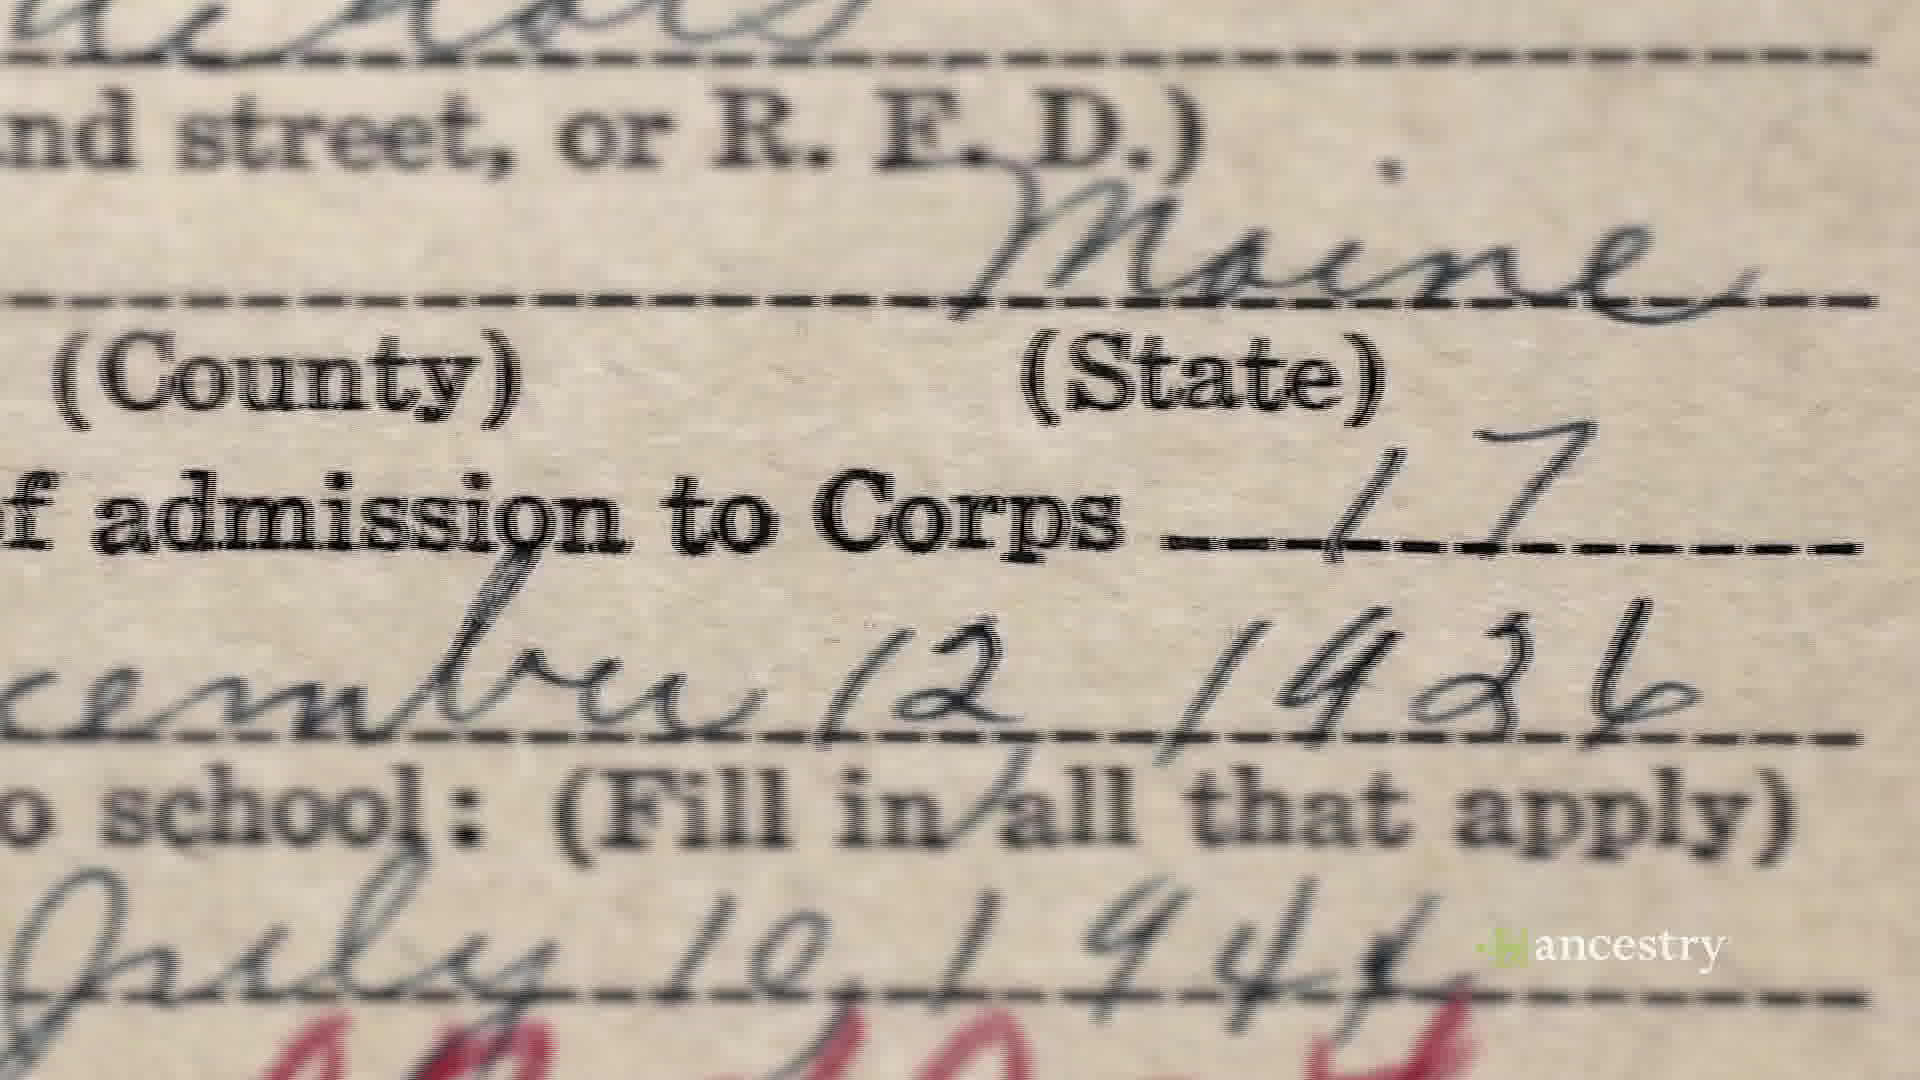 nd street, or R. F. D.)
Maine
(County) (State)
f admission to Corps 17
cember 12 1926
o school: (Fill in all that apply)
July 10, 1944
ancestry